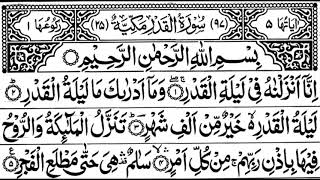 اٰيَاتُهَا ٥ (٩٧) سُوْرَةُ الْقَدْرِ مَكِّيَّةٌ (٢٥) رُكُوْعُهَا ١
بِسْمِ اللّٰهِ الرَّحْمٰنِ الرَّحِيْمِ
اِنَّاۤ اَنْزَلْنٰهُ فِیْ لَیْلَةِ الْقَدْرِ ١ وَمَاۤ اَدْرٰىكَ مَا لَیْلَةُ الْقَدْرِ ٢
لَیْلَةُ الْقَدْرِ خَیْرٌ مِّنْ اَلْفِ شَهْرٍ ٣ تَنَزَّلُ الْمَلٰٓىِٕكَةُ وَالرُّوْحُ
فِیْهَا بِاِذْنِ رَبِّهِمْ مِّنْ كُلِّ اَمْرٍ ٤ سَلٰمٌ هِیَ حَتّٰى مَطْلَعِ الْفَجْرِ ٥